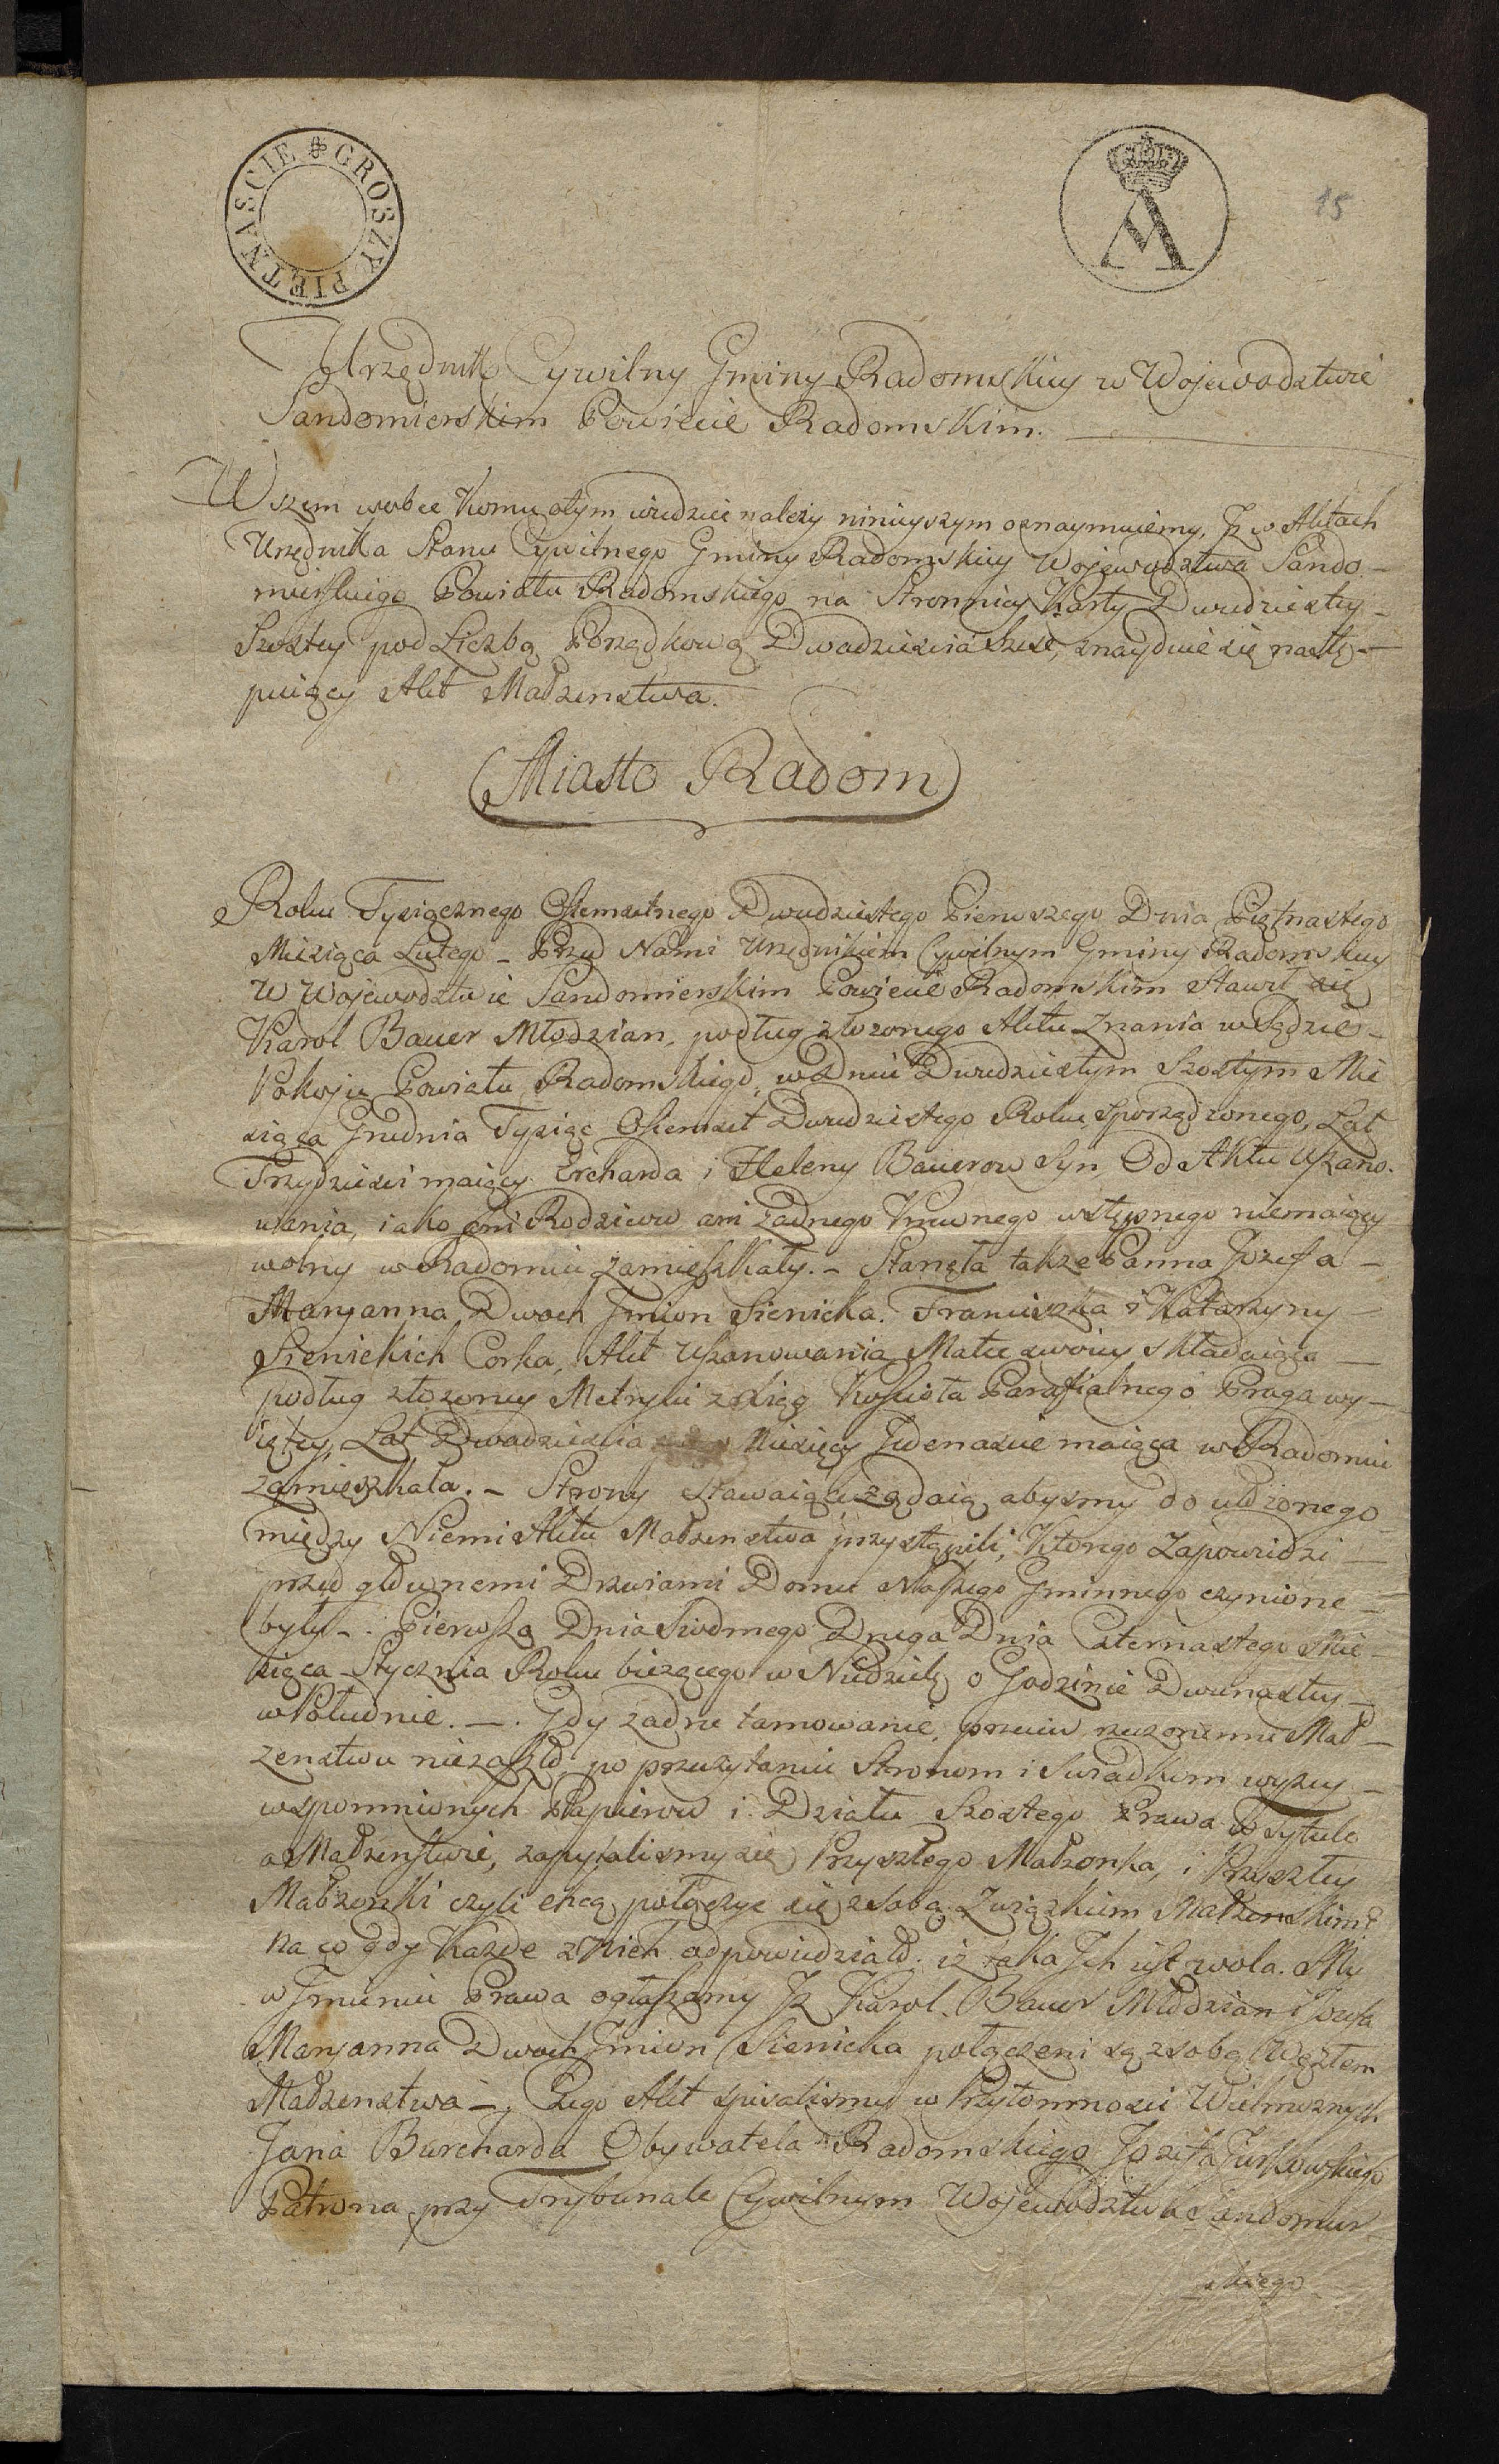 GROSZY PIĘTNAŚCIE
A
15
Urzędnik Cywilny Gminy Radomskiey w Wojewodztwie
Sandomierskim Powiecie Radomskim.
Wszem wobec Komu otym wiedziec należy ninieyszym oznaymuiemy, Jż w Aktach
Urzędnika Stanu Cywilnego Gminy Radomskiey Wojewodztwa Sando-
mierskiego Powiatu Radomskiego na Stronnicy Karty Dwudziestey
Szostey pod Liczbą Porządkową Dwadziescia Szesc, znayduie się nastę-
puiący Akt Małzenstwa.
(Miasto Radom)
Roku Tysiącznego Osiemsetnego Dwudziestego Pierwszego Dnia Piętnastego
Miesiąca Lutego - Przed Nami Urzędnikiem Cywilnym Gminy Radomskiey
W Wojewodztwie Sandomierskim Powiecie Radomskim Stawił się
Karol Bauer Młodzian, podług złozonego Aktu Znania w Sądzie
Pokoju Powiatu Radomskiego, w Dniu Dwudziestym Szostym Mie
siąca Grudnia Tysiąc Osiemset Dwudziestego Roku Sporządzonego, Lat
Trzydziesci maiący Ercharda i Heleny Bauerow Syn, Od Aktu Uszano-
wania, iako ani Rodzicow ani żadnego Krewnego wstępnego niemaiący
wolny w Radomiu Zamieszkały. - Stanęła takze Panna Jozefa -
Maryanna Dwoch Jmion Sienicka. Franciszka i Katarzyny
Sienickich Corka, Akt Uszanowania Matce swoiey składaiąca
podług złozoney Metryki z Xiąg Kościoła Parafialnego Praga wy-
iętey, Lat Dwadziescia Miesięcy Jedenascie maiąca w Radomiu
zamieszkała. - Strony stawaiące żądaią, abysmy do ułożonego
między Niemi Aktu Małzenstwa przystąpili, Ktorego Zapowiedzi
przed głownemi Drzwiami Domu Naszego Gminnego czynione -
były -. Pierwsza Dnia Siodmego Druga Dnia Czternastego Mie-
siąca Stycznia Roku bieżącego w Niedzielę o Godzinie Dwunastey
w Południe. -. Gdy żadne tamowanie, przeciw rzeczonemu Mał-
żenstwu niezaszło, po przeczytaniu Stronom i Swiadkom wyżey
wspomnionych Papierow i Działu Szostego Prawa w Tytule
o Małzenstwie, zapytalismy się Przyszłego Małzonka, i Przyszłey
Małzonki czyli chcą połączyc się z sobą Związkiem Małzenskim?
na co gdy Każde z nich odpowiedziało, iż taka Jch iest wola. My
w Jmieniu Prawa ogłaszamy Jż Karol Bauer Młodzian i Jozefa
Maryanna Dwoch Jmion Sienicka połączeni są z sobą Węzłem
Małzenstwa -. Czego Akt spisalismy w Przytomnosci Wielmoznych
Jana Burcharda Obywatela Radomskiego Jozefa Jurkowskiego
Patrona przy Trybunale Cywilnym Wojewodztwa Sandomier-
skiego